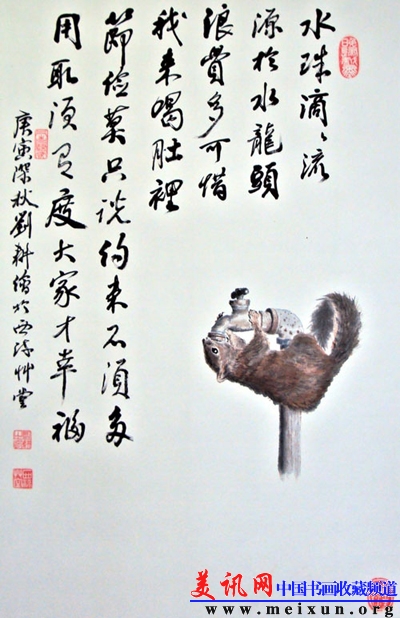 水珠滴、流
源於水龍頭
浪費多可惜
我来喝肚裡
節儉莫只说約束不須多
用取須有度大家才幸福
庚寅深秋劉耕繪於西艸堂
美讯网 中国书画收藏频道
www.meixun.org